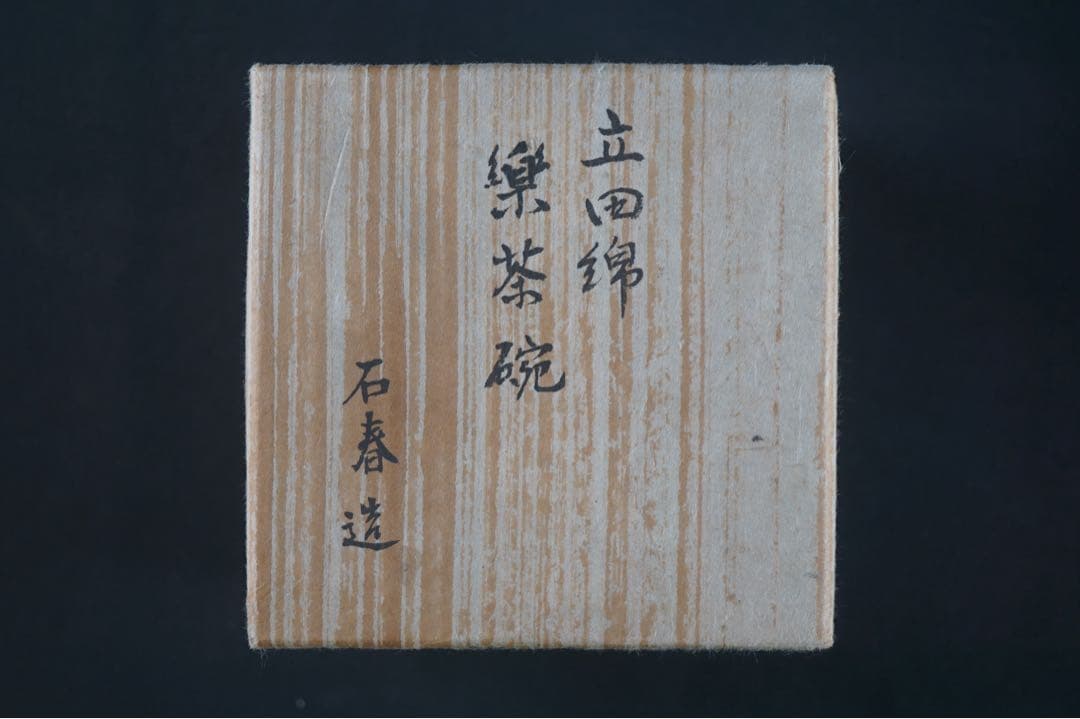 立田綿
樂茶碗
石春造